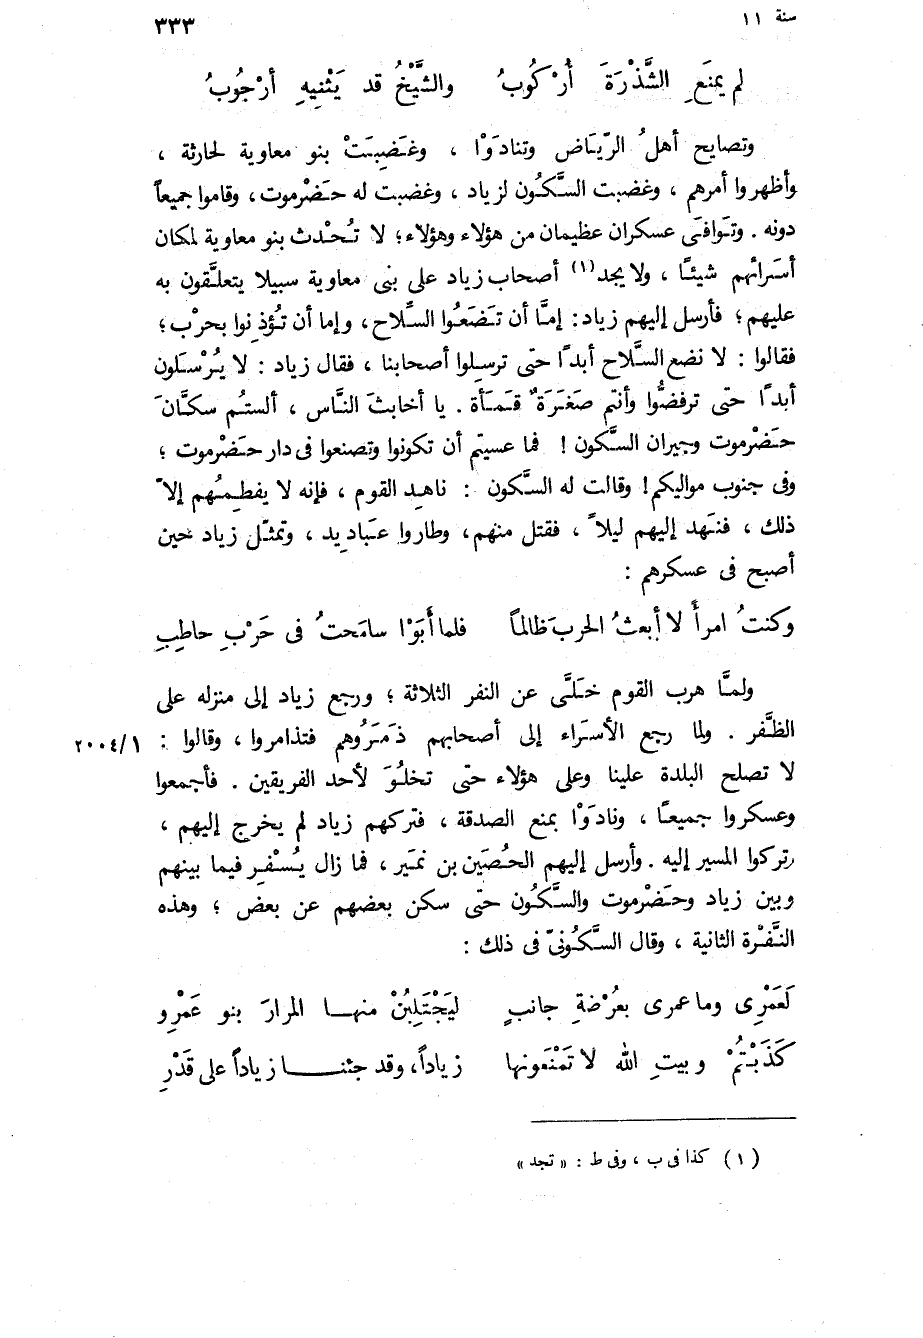 سنة ١١
٣٣٣
لم يمنَعِ الشَّذْرَةَ أُرْكُوبُ والشَّيْخُ قد يَثْنِيهِ أرْجُوبُ
وتصايح أهلُ الرِّيَاض وتنادَوْا ، وغَضِبَتْ بنو معاوية لحارثة ،
وأظهروا أمرهم ، وغضبت السَّكُون لزياد ، وغضبت له حضْرموت ، وقاموا جميعاً
دونه . وتوافى عسكران عظيمان من هؤلاء وهؤلاء؛ لا تُحْدث بنو معاوية لمكان
أسَرائهم شيئًا ، ولا يجد (١) أصحاب زياد على بنى معاوية سبيلا يتعلَّقون به
عليهم ؛ فأرسل إليهم زياد : إمَّا أن تَضَعُوا السِّلاح ، وإما أن تُؤذِنوا بحرْب ؛
فقالوا : لا نضع السِّلاح أبدًا حتى ترسِلوا أصحابنا ، فقال زياد : لا يُرْسَلون
أبدًا حتى ترفضُّوا وأنتم صَغَرَةٌ قَمَأة . يا أخابثَ النَّاس ، ألستُم سكَّانَ
حضْرموت وجيران السَّكون ! فما عسيتم أن تكونوا وتصنعوا فى دار حضْرموت ؛
وفى جنوب مواليكم ! وقالت له السَّكون : ناهِد القوم ، فإنه لا يفطِمُهم إلاَّ
ذلك ، فنَهد إليهم ليلاً ، فقتل منهم ، وطاروا عَبَاديد ، وتمثّل زياد حين
أصبح فى عسكرهم :
وكنتُ امرأً لا أبعثُ الحربَ ظالمًا فلما أَبَوْا سامَحتُ فى حَرْبِ حاطِبِ
ولمَّا هرب القوم خَلَّى عن النفر الثلاثة ؛ ورجع زياد إلى منزله على
الظَّفر . ولما رجع الأسَراء إلى أصحابهم ذَمَرُوهم فتذامروا ، وقالوا : ٢٠٠٤/١
لا تصلح البلدة علينا وعلى هؤلاء حتى تخلُوَ لأحد الفريقين . فأجمعوا
وعسكروا جميعًا ، ونادَوْا بمنع الصدقة ، فتركهم زياد لم يخرج إليهم ،
وتركوا المسير إليه . وأرسل إليهم الحُصَين بن نمَير ، فما زال يُسْفِر فيما بينهم
وبين زياد وحَضْرموت والسَّكُون حتى سكن بعضهم عن بعض ؛ وهذه
النَّفْرة الثانية ، وقال السَّكُونىّ فى ذلك :
لَعَمْرِى وما عمرى بعُرْضَةِ جانبٍ ليَجْتَلِبُنْ منها المرارَ بنو عَمْرِو
كَذَبْتُمْ وبيتِ الله لا تَمْنَعونها زياداً، وقد جئنا زياداً على قَدْرِ
(١) كذا فى ب ، وفى ط : « تجد »